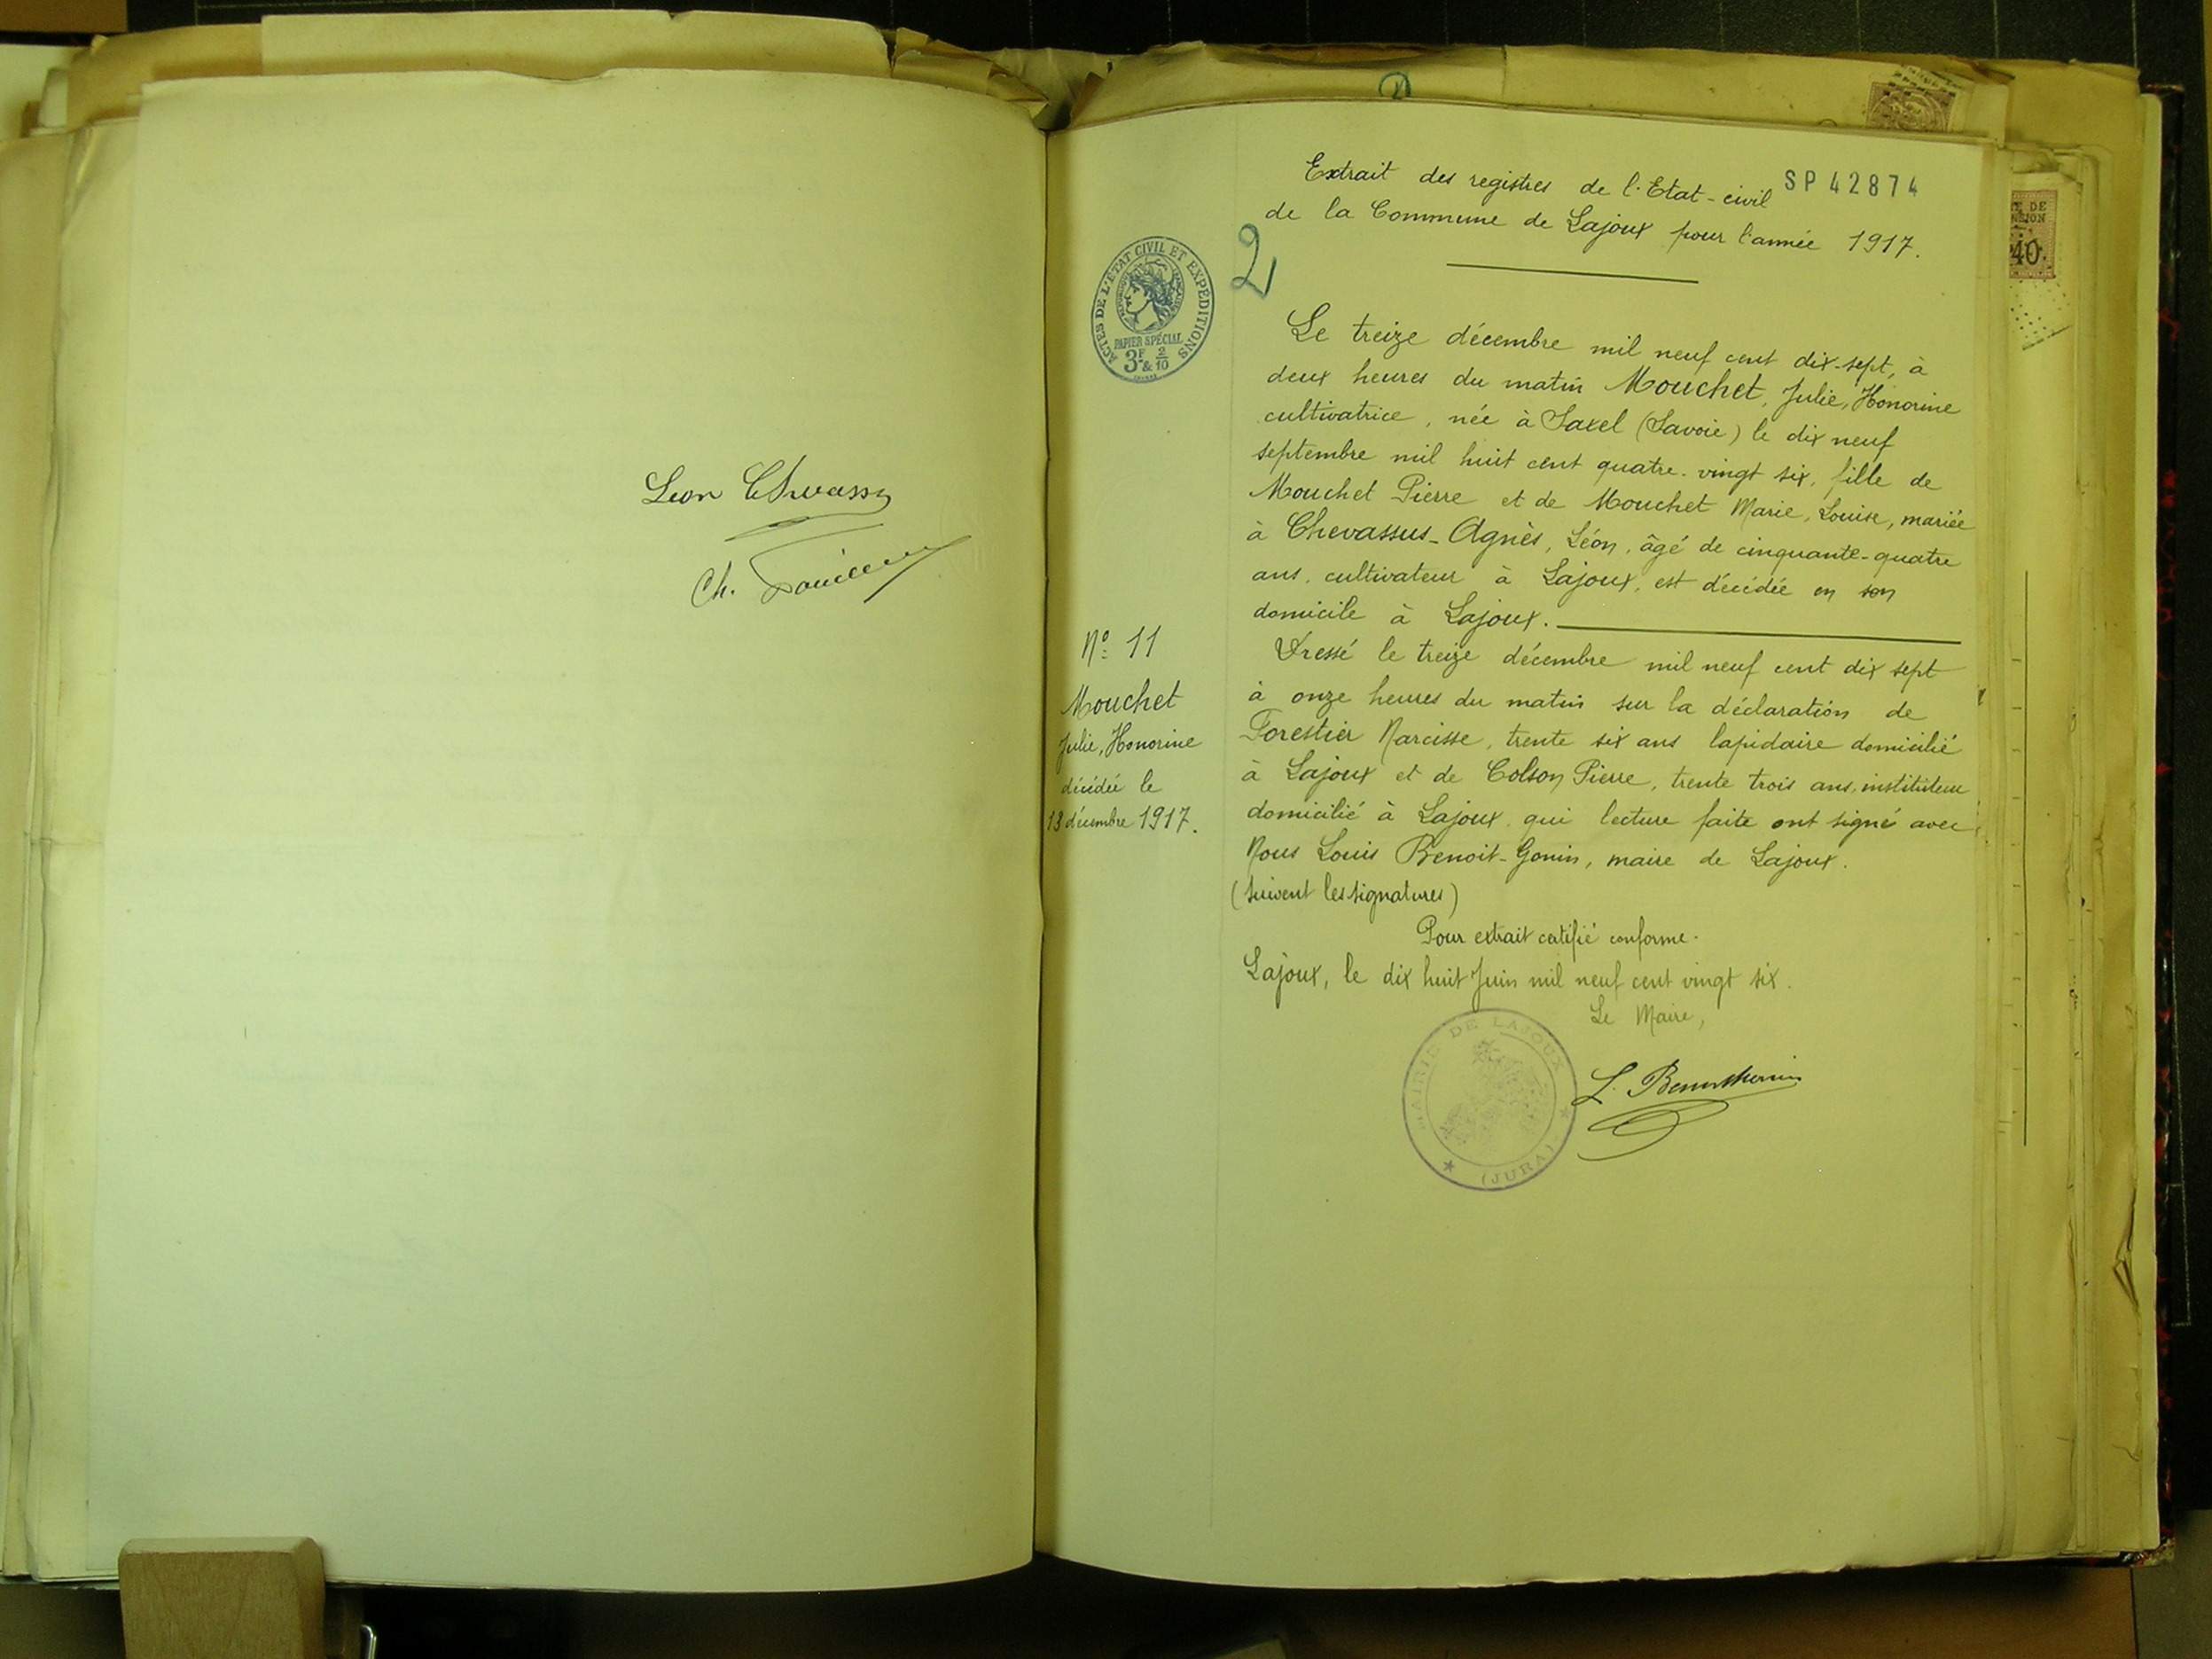 Leon Chevassu
Ch.
SP 42874
Extrait des registres de l'Etat-civil
de la Commune de Lajoux pour l'année 1917.
2
ACTES DE L'ÉTAT CIVIL ET EXPÉDITIONS
PAPIER SPÉCIAL
3F & 2/10
Le treize décembre mil neuf cent dix-sept, à
deux heures du matin Mouchet, Julie, Honorine
cultivatrice, née à Saxel (Savoie) le dix neuf
septembre mil huit cent quatre-vingt six, fille de
Mouchet Pierre et de Mouchet Marie, Louise, mariée
à Chevassus-Agnès, Léon, âgé de cinquante-quatre
ans, cultivateur à Lajoux, est décédée en son
domicile à Lajoux.
Dressé le treize décembre mil neuf cent dix sept
à onze heures du matin sur la déclaration de
Forestier Narcisse, trente six ans lapidaire domicilié
à Lajoux et de Colson Pierre, trente trois ans, instituteur
domicilié à Lajoux qui lecture faite ont signé avec
Nous Louis Benoit-Gonin, maire de Lajoux.
(suivent les signatures)
Pour extrait certifié conforme.
Lajoux, le dix huit Juin mil neuf cent vingt six.
Le Maire,
L. Benoit Gonin
MAIRIE DE LAJOUX
(JURA)
N° 11
Mouchet
Julie, Honorine
décédée le
13 décembre 1917.
40